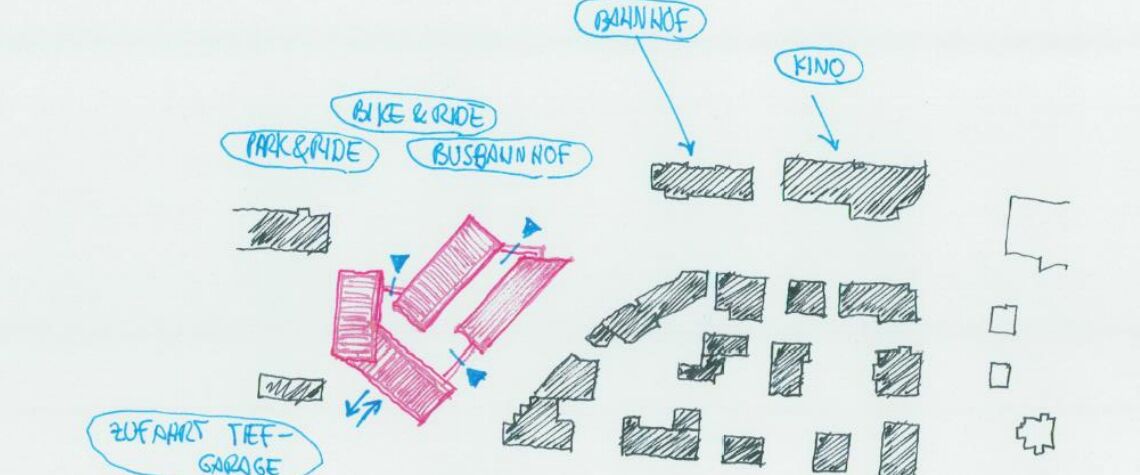 BAHNHOF
KINO
BIKE & RIDE
PARK & RIDE
BUSBAHNHOF
ZUFAHRT TIEF-
GARAGE